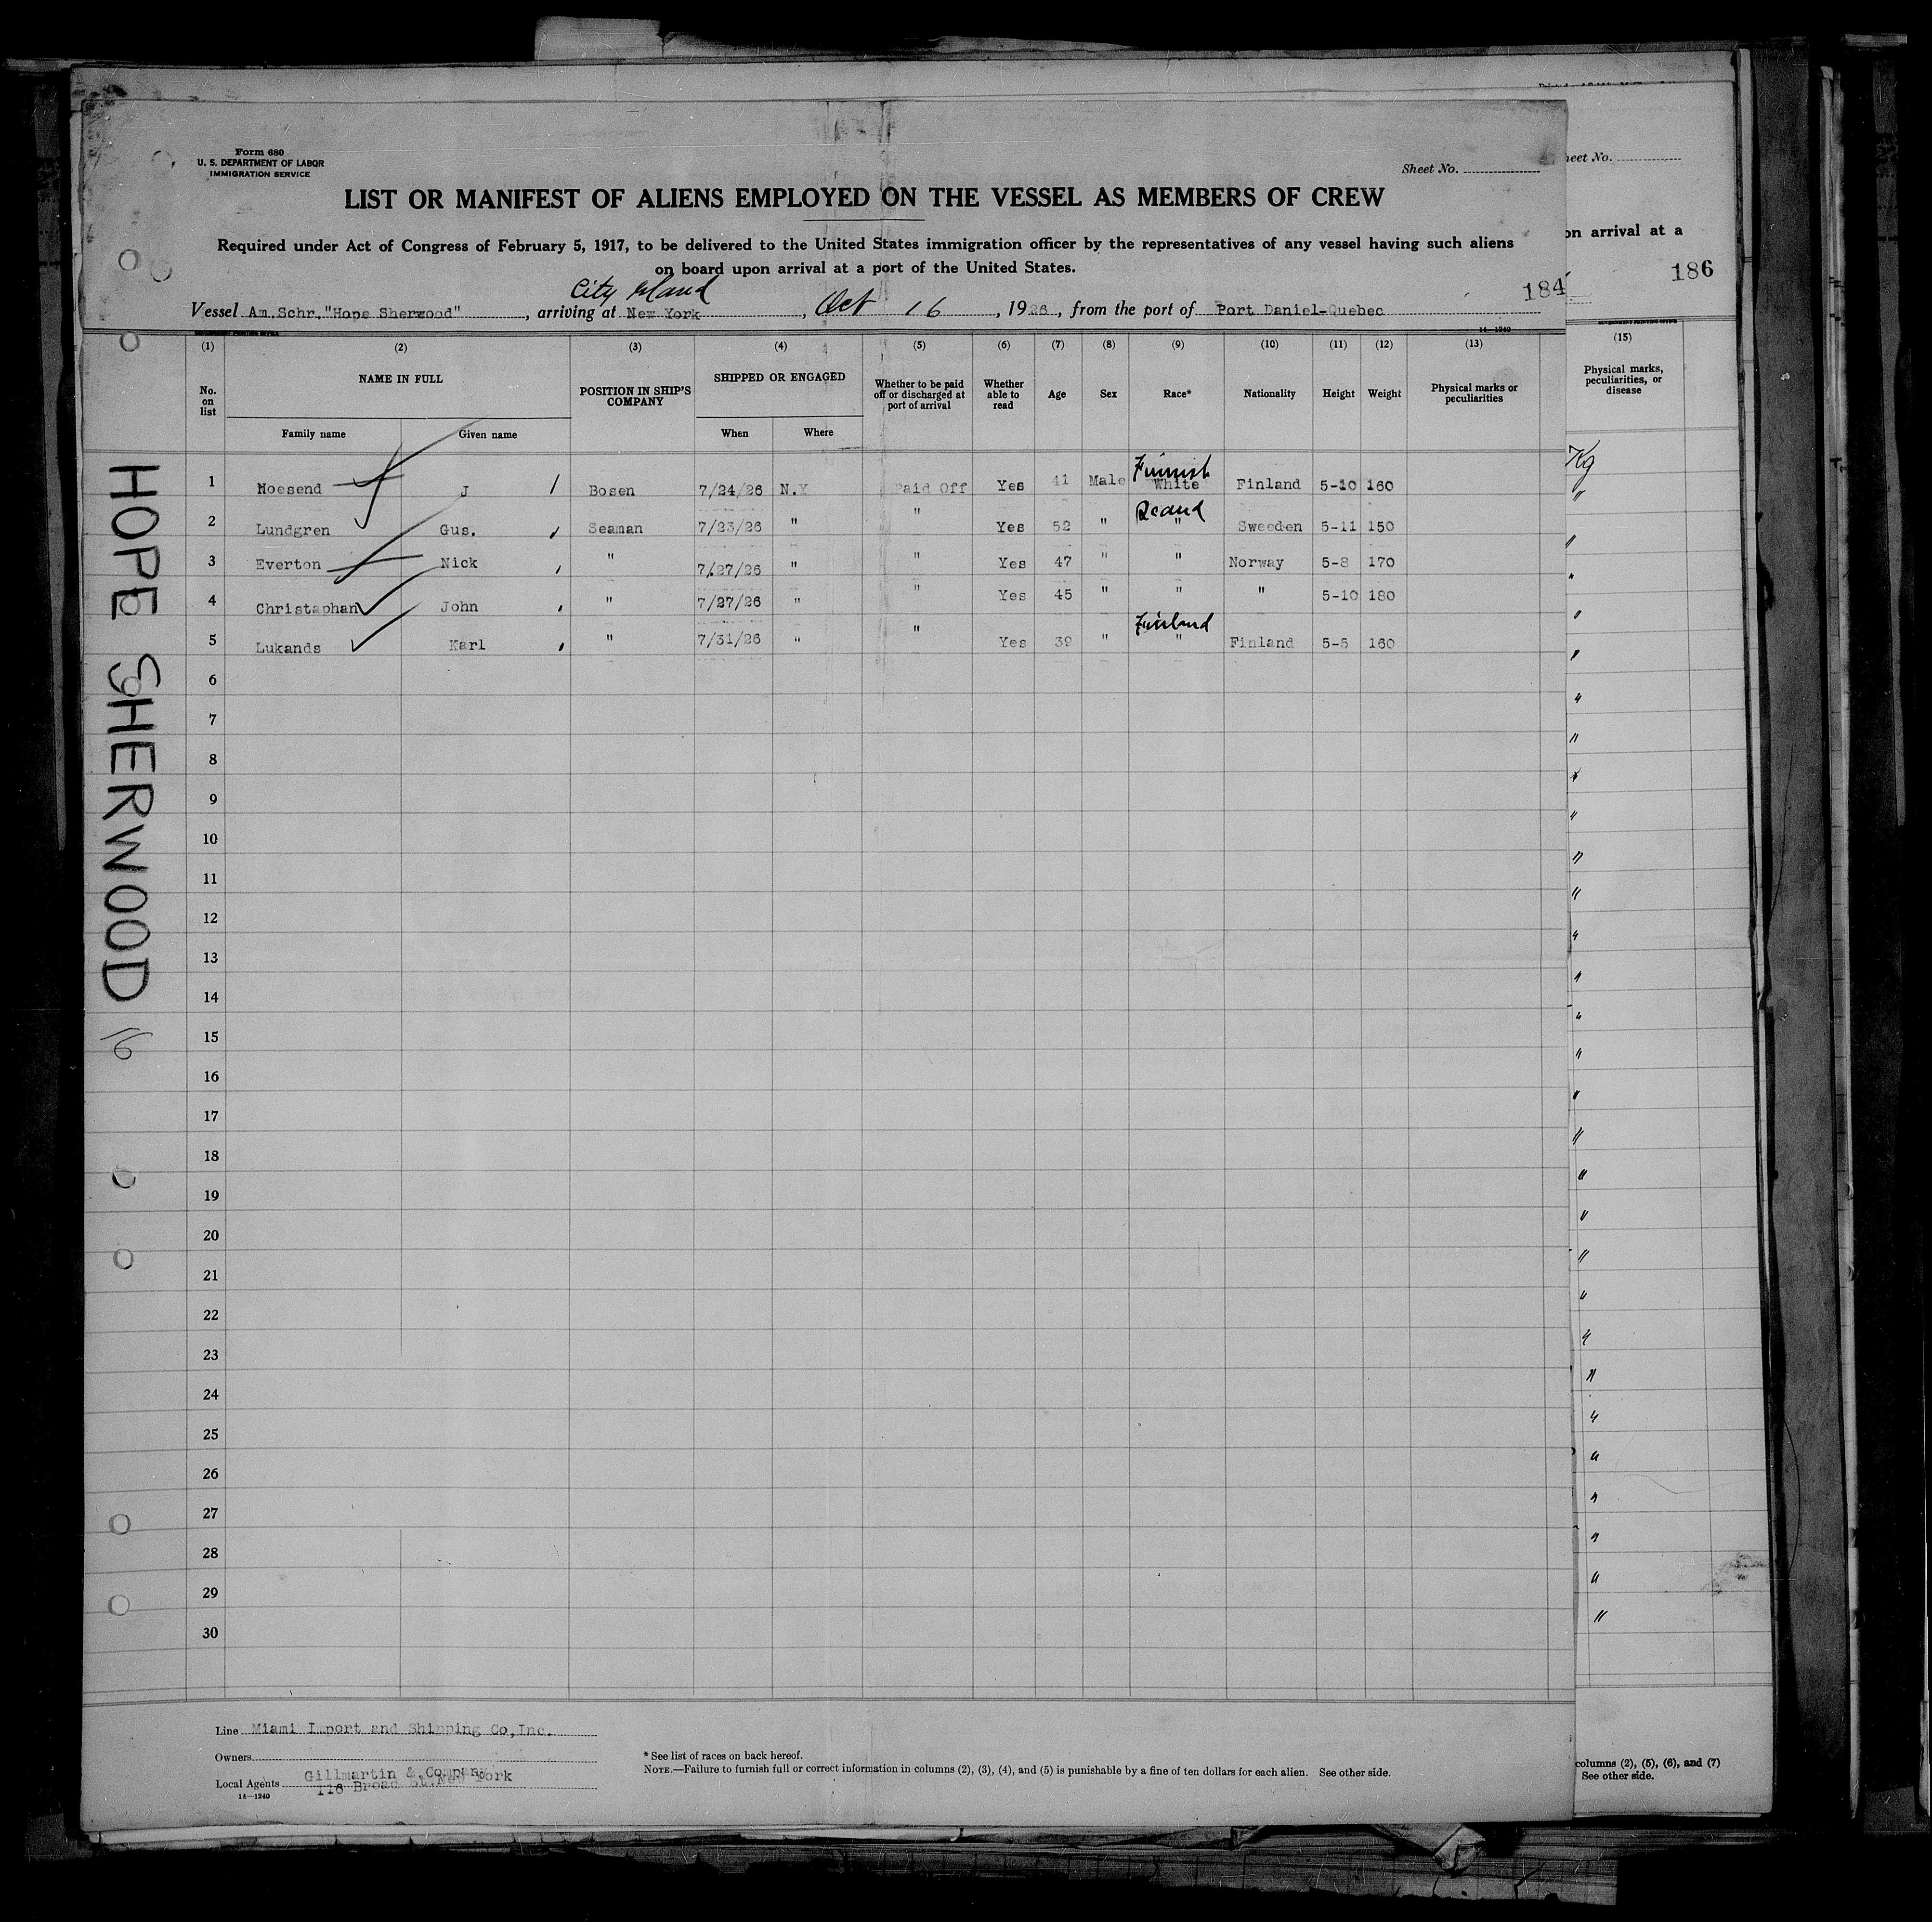 Form 680
U. S. DEPARTMENT OF LABOR
IMMIGRATION SERVICE
Sheet No.
LIST OR MANIFEST OF ALIENS EMPLOYED ON THE VESSEL AS MEMBERS OF CREW
Required under Act of Congress of February 5, 1917, to be delivered to the United States immigration officer by the representatives of any vessel having such aliens
on board upon arrival at a port of the United States.
City Island
184
Vessel Am.Schr."Hope Sherwood", arriving at New York, Oct 16, 1926, from the port of Port Daniel-Quebec
14-1240
(1) (2) (3) (4) (5) (6) (7) (8) (9) (10) (11) (12) (13)
No. on list NAME IN FULL POSITION IN SHIP'S COMPANY SHIPPED OR ENGAGED Whether to be paid off or discharged at port of arrival Whether able to read Age Sex Race* Nationality Height Weight Physical marks or peculiarities
Family name Given name When Where
Finnish
1 Hoesend J Bosen 7/24/26 N.Y Paid Off Yes 41 Male White Finland 5-10 160
Scand
2 Lundgren Gus. Seaman 7/23/26 " " Yes 52 " " Sweeden 5-11 150
3 Everton Nick " 7/27/26 " " Yes 47 " " Norway 5-8 170
4 Christaphan John " 7/27/26 " " Yes 45 " " " 5-10 180
5 Lukands Karl " 7/31/26 " " Yes 39 " " Finland 5-5 160
6
7
8
9
10
11
12
13
14
15
16
17
18
19
20
21
22
23
24
25
26
27
28
29
30
HOPE SHERWOOD 16
Line Miami Import and Shipping Co,Inc.
Owners
Local Agents Gillmartin & Company
116 Broad St.New York
14-1240
* See list of races on back hereof.
NOTE.—Failure to furnish full or correct information in columns (2), (3), (4), and (5) is punishable by a fine of ten dollars for each alien. See other side.
heet No.
on arrival at a
186
(15)
Physical marks, peculiarities, or disease
columns (2), (5), (6), and (7)
See other side.